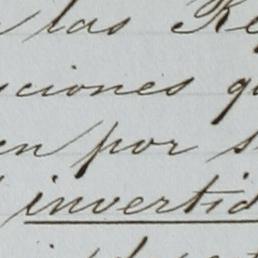 las Re
ciones q
en por s
invertid